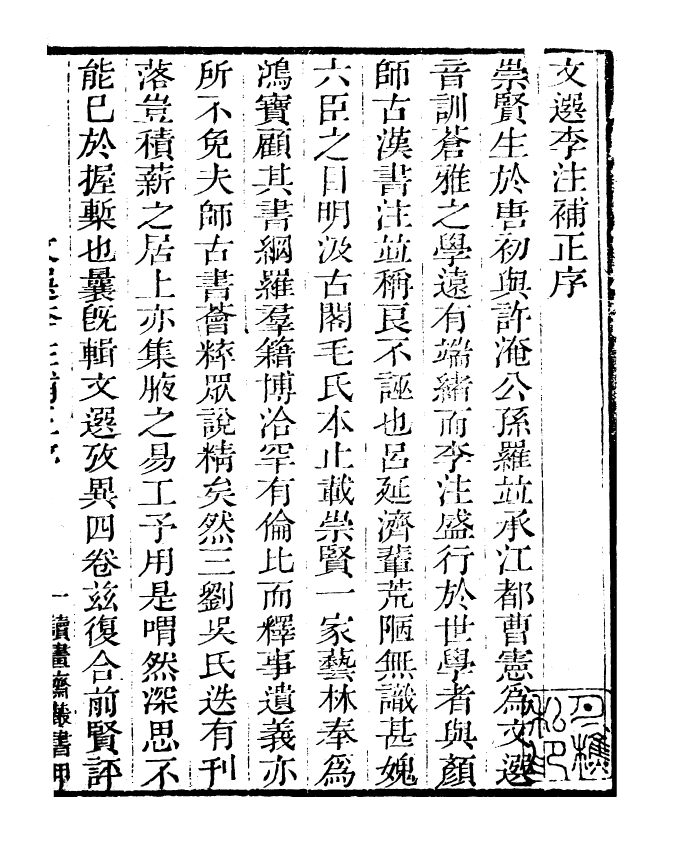 文選李注補正序
崇賢生於唐初與許淹公孫羅並承江都曹憲爲文選
音訓蒼雅之學遠有端緒而李注盛行於世學者與顏
師古漢書注並稱良不誣也呂延濟輩荒陋無識甚媿
六臣之目明汲古閣毛氏本止載崇賢一家藝林奉爲
鴻寶顧其書綱羅羣籍博洽罕有倫比而釋事遺義亦
所不免夫師古書薈粹眾說精矣然三劉吳氏迭有刊
落豈積薪之居上亦集腋之易工予用是喟然深思不
能已於握槧也曩旣輯文選攷異四卷兹復合前賢評
文選李注補正序
一
讀畫齋叢書